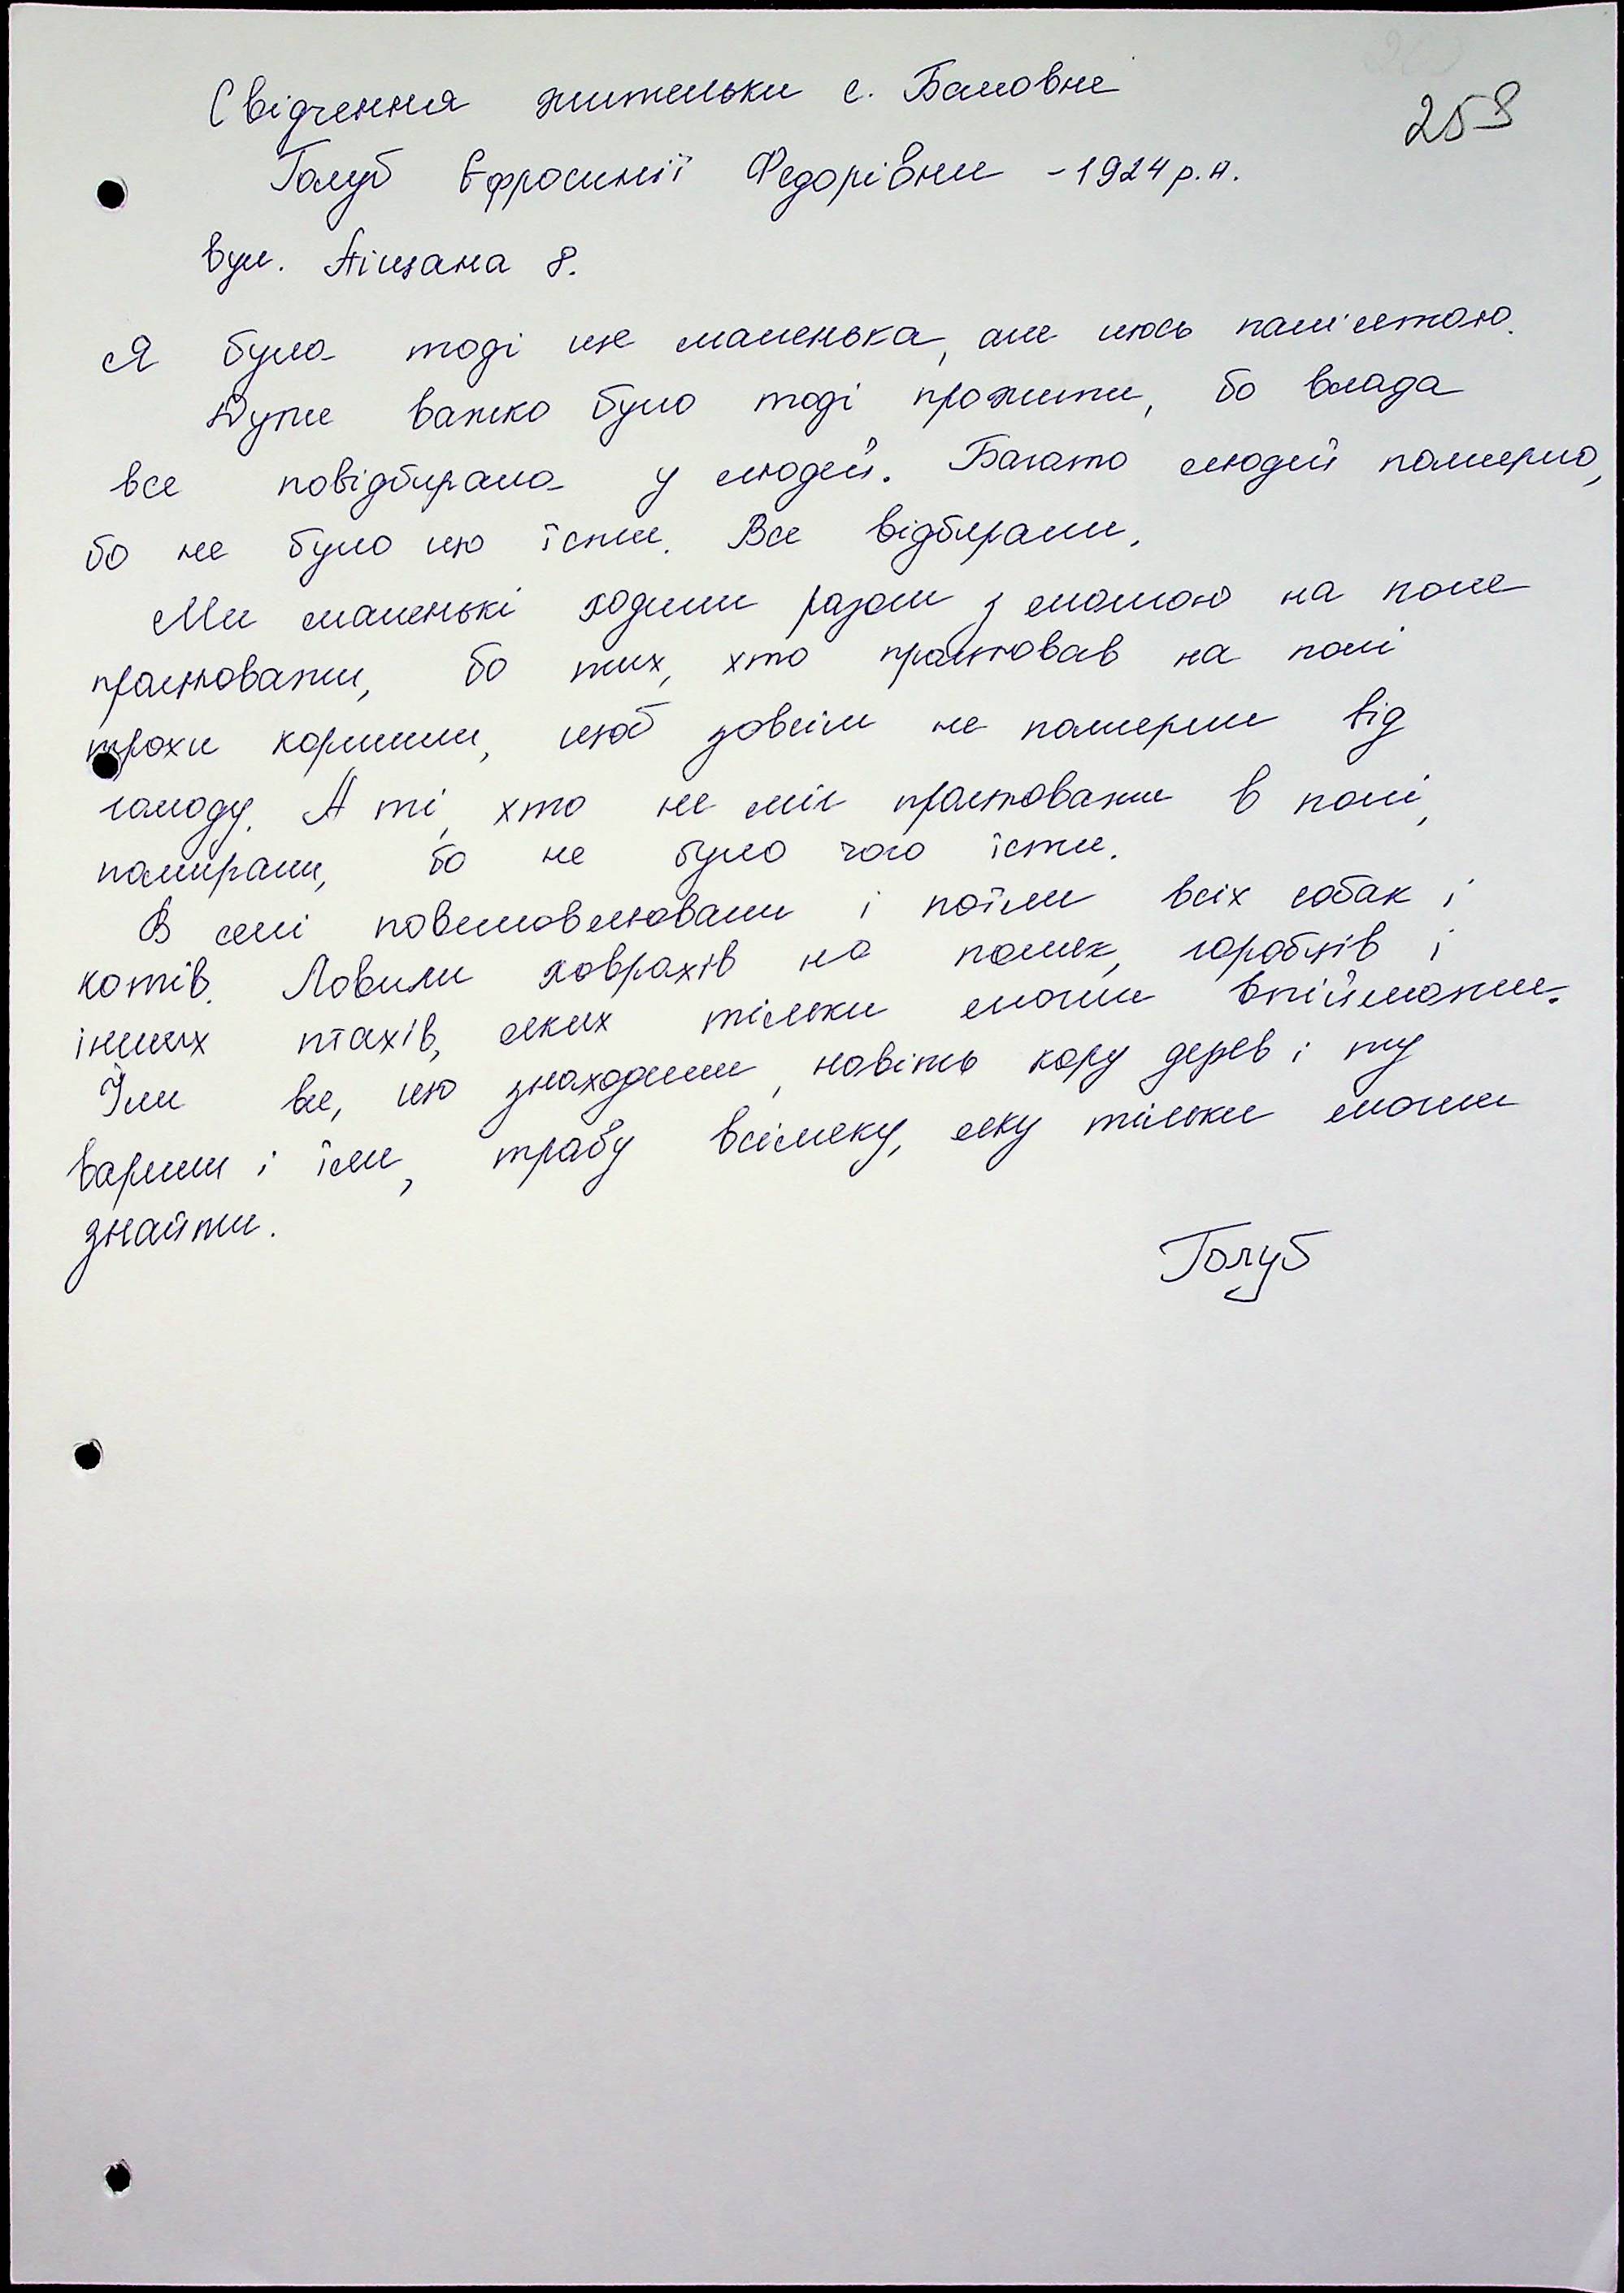 259
Свідчення жительки с. Баловне
Голуб Єфросинії Федорівни - 1924 р.н.
вул. Піщана 8.
Я була тоді ще маленька, але щось пам'ятаю.
Дуже важко було тоді прожити, бо влада
все повідбирала у людей. Багато людей померло,
бо не було що їсти. Все відбирали.
Ми маленькі ходили разом з мамою на поле
працювати, бо тих, хто працював на полі
трохи кормили, щоб зовсім не померли від
голоду. А ті, хто не міг працювати в полі,
помирали, бо не було чого їсти.
В селі повиловлювали і поїли всіх собак і
котів. Ловили ховрахів на полях, горобців і
інших птахів, яких тільки могли впіймати.
Їли все, що знаходили, навіть кору дерев і ту
варили і їли, траву всіляку, яку тільки могли
знайти.
Голуб